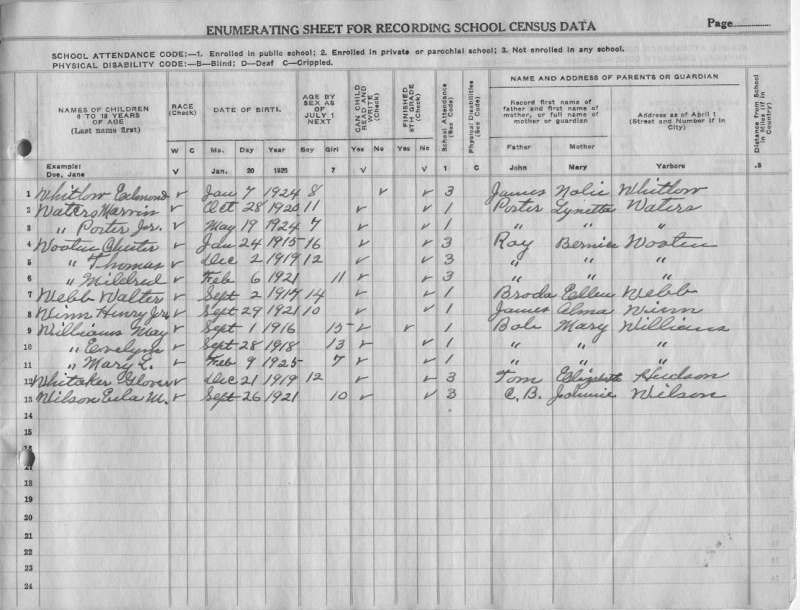 ENUMERATING SHEET FOR RECORDING SCHOOL CENSUS DATA Page
SCHOOL ATTENDANCE CODE:—1. Enrolled in public school; 2. Enrolled in private or parochial school; 3. Not enrolled in any school.
PHYSICAL DISABILITY CODE:—B—Blind; D—Deaf C—Crippled.
NAMES OF CHILDREN 6 TO 18 YEARS OF AGE (Last name first) RACE (Check) DATE OF BIRTH AGE BY SEX AS OF JULY 1 NEXT CAN CHILD READ AND WRITE (Check) FINISHED 8TH GRADE (Check) School Attendance (See Code) Physical Disabilities (See Code) NAME AND ADDRESS OF PARENTS OR GUARDIAN Distance from School in miles (if in Country)
Record first name of father and first name of mother, or full name of mother or guardian Address as of April 1 (Street and Number if in City)
W C Mo. Day Year Boy Girl Yes No Yes No Father Mother
Example: Doe, Jane V Jan. 20 1925 7 V V 1 C John Mary Yarbore .5
1 Whitlow Edmond v Jan 7 1924 8 v v 3 James Nolie Whitlow
2 Waters Marvin v Oct 28 1920 11 v v 1 Porter Lynette Waters
3 " Porter Jr. v May 19 1924 7 v v 1 " " "
4 Wooten Curtis v Jan 24 1915 16 v v 3 Roy Bernice Wooten
5 " Thomas v Dec 2 1919 12 v v 3 " " "
6 " Mildred v Feb 6 1921 11 v v 3 " " "
7 Webb Walter v Sept 2 1917 14 v v 1 Broda Ellen Webb
8 Winn Henry Jr. v Sept 29 1921 10 v v 1 James Alma Winn
9 Williams May v Sept 1 1916 15 v v 1 Bob Mary Williams
10 " Evelyn v Sept 28 1918 13 v v 1 " " "
11 " Mary L. v Feb 9 1925 7 v v 1 " " "
12 Whitaker Glover v Dec 21 1919 12 v v 3 Tom Elizabeth Hudson
13 Wilson Eula M. v Sept 26 1921 10 v v 3 C. B. Johnnie Wilson
14
15
16
17
18
19
20
21
22
23
24